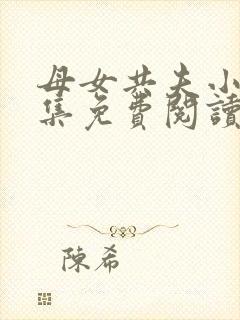 母女共夫小
集免費閱讀
陳希